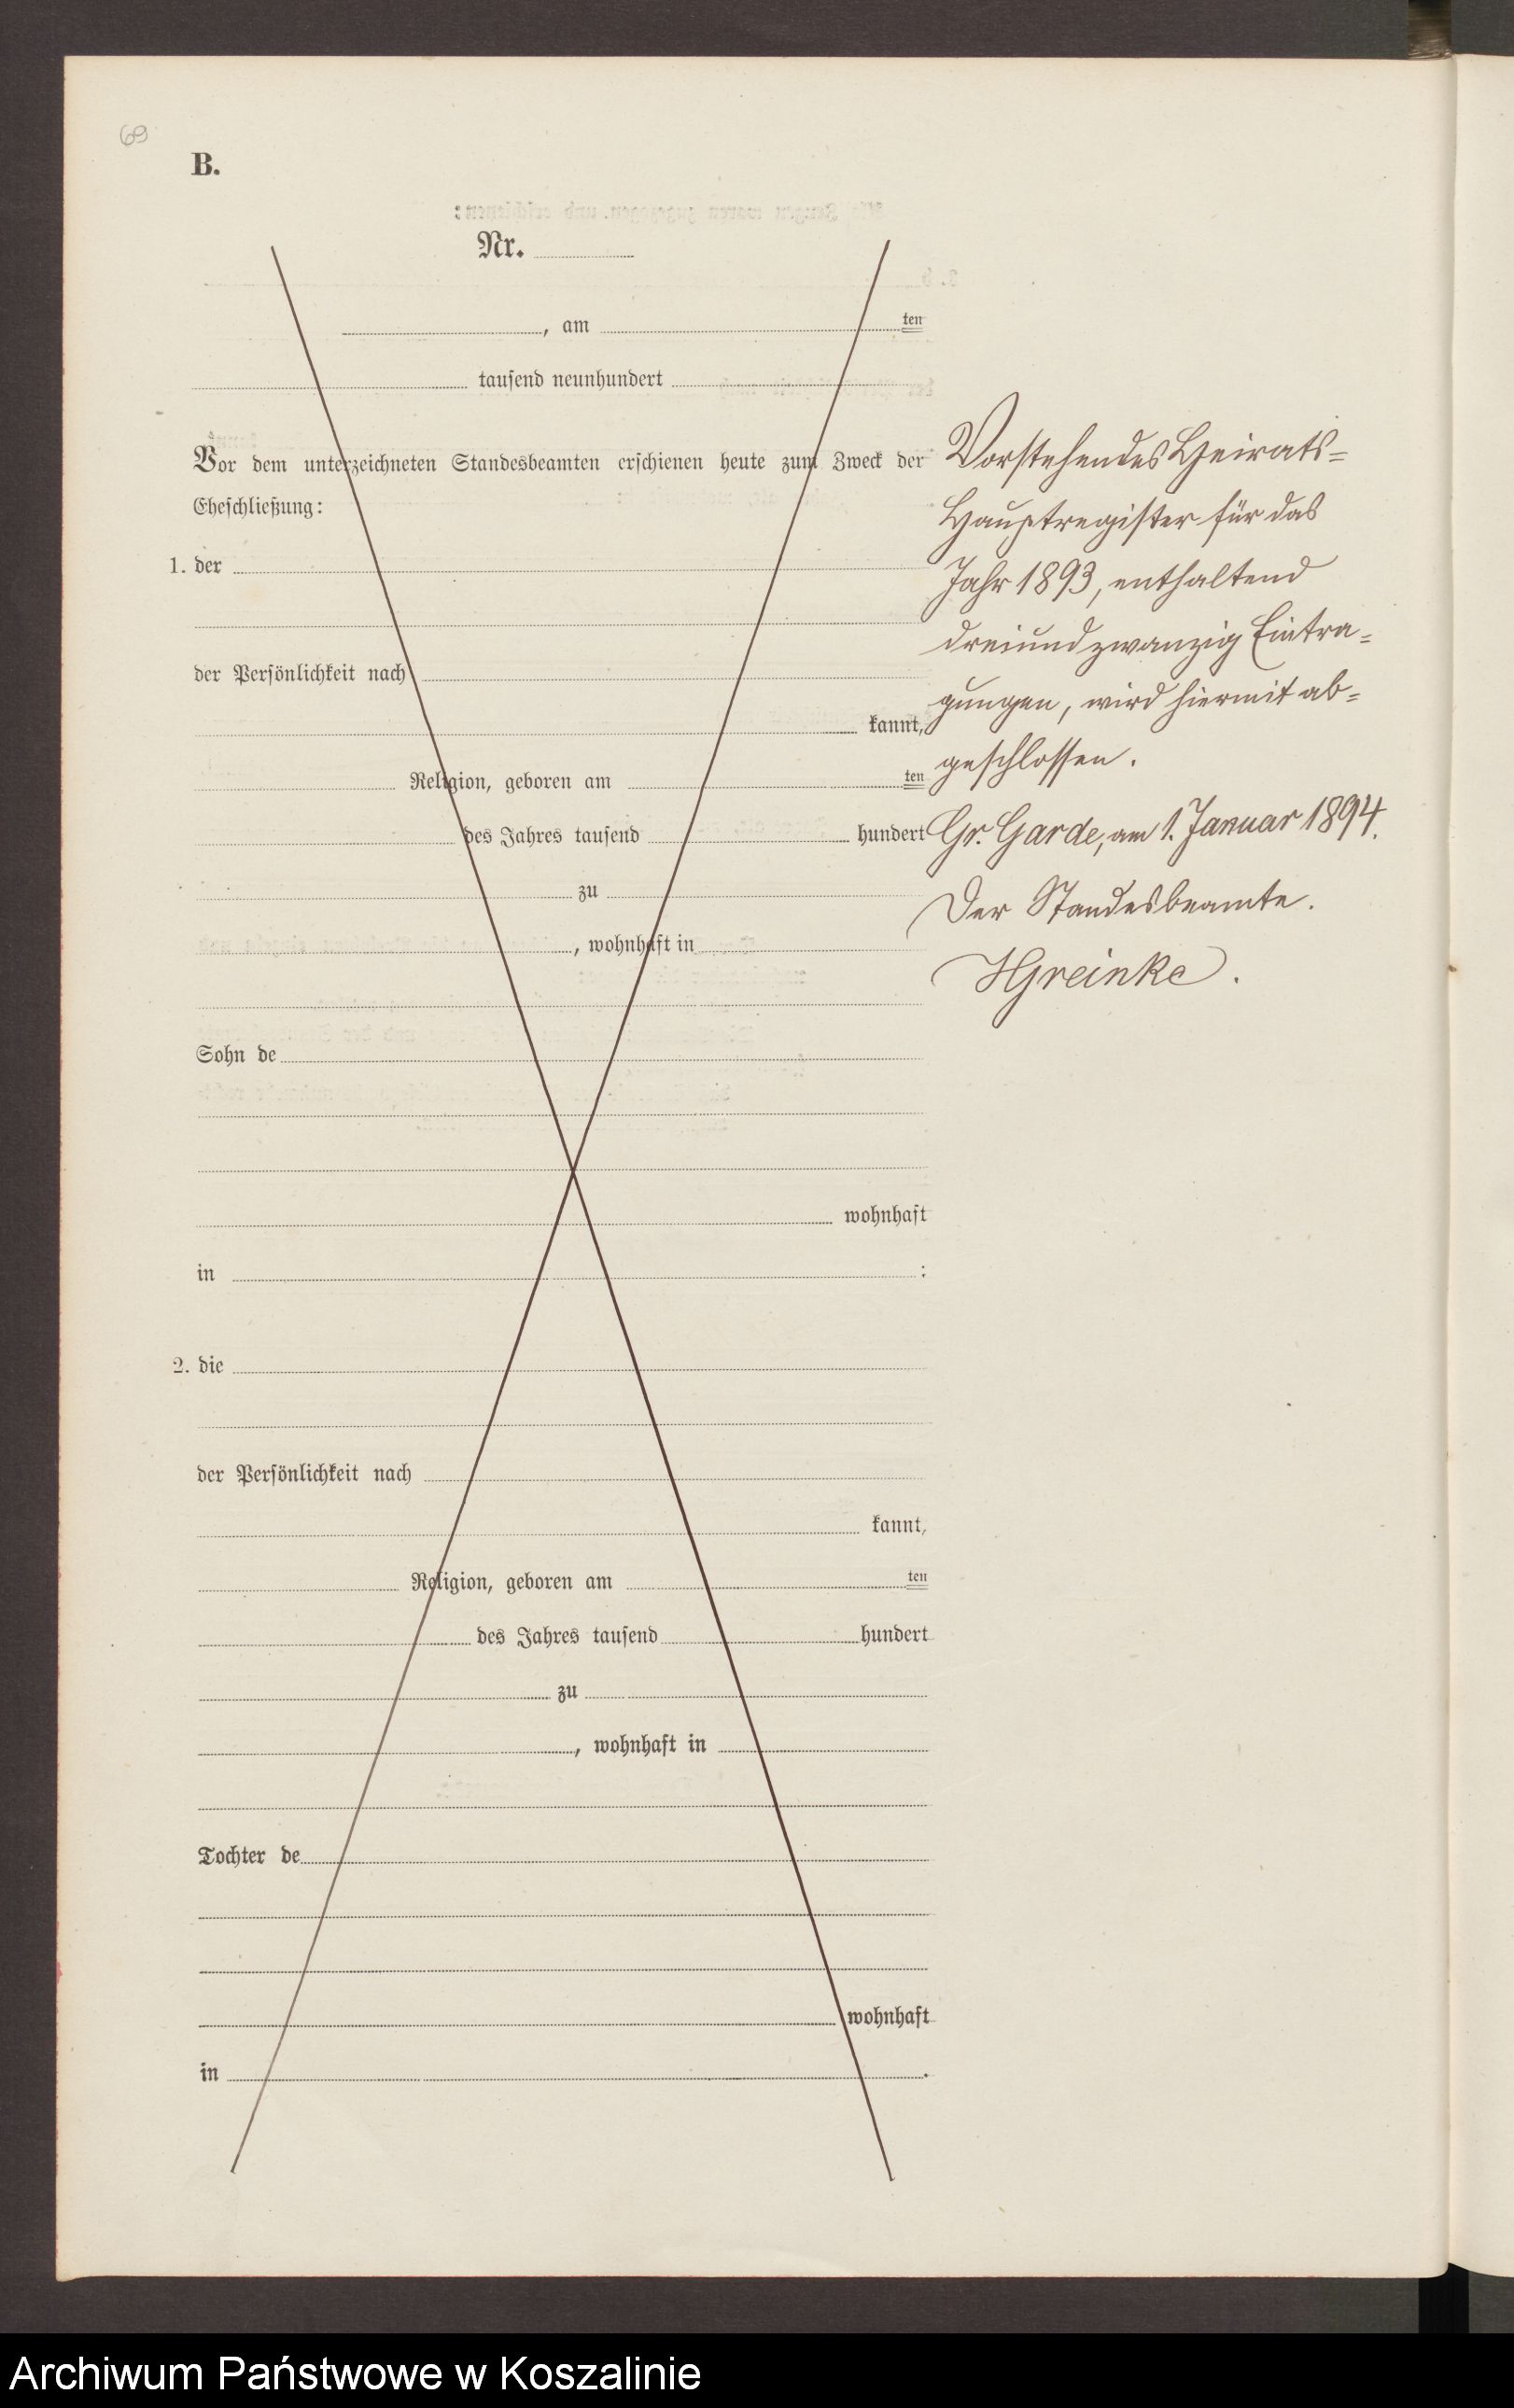 69
B.
Nr.
, am ten
tausend neunhundert
Vor dem unterzeichneten Standesbeamten erschienen heute zum Zweck der
Eheschließung:
1. der
der Persönlichkeit nach
kannt,
Religion, geboren am ten
des Jahres tausend hundert
zu
, wohnhaft in
Sohn de
wohnhaft
in :
2. die
der Persönlichkeit nach
kannt,
Religion, geboren am ten
des Jahres tausend hundert
zu
, wohnhaft in
Tochter de
wohnhaft
in .
Vorstehendes Heirats=
Hauptregister für das
Jahr 1893, enthaltend
dreiundzwanzig Eintra=
gungen, wird hiermit ab=
geschlossen.
Gr. Garde, am 1. Januar 1894.
Der Standesbeamte.
Archiwum Państwowe w Koszalinie